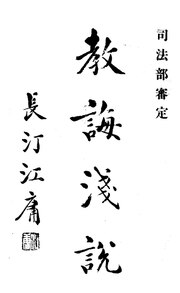 司法部審定
教誨淺說
長汀江庸